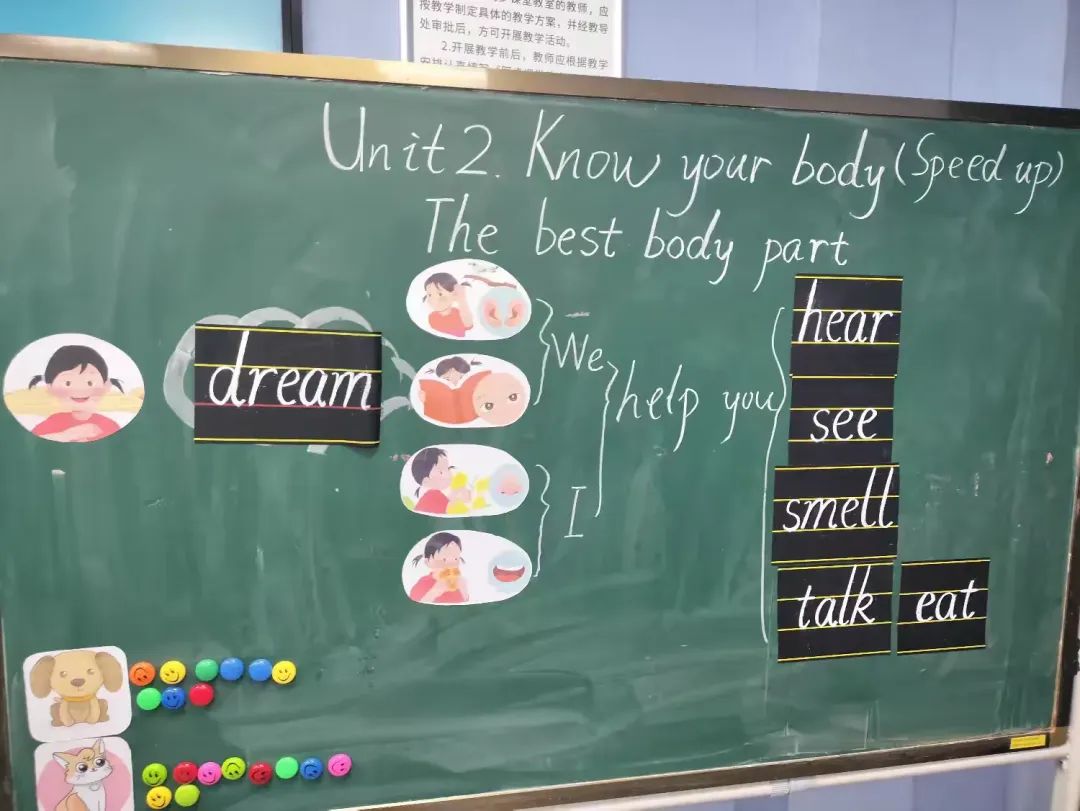 课堂教室的教师，应
按教学制定具体的教学方案，并经教导
处审批后，方可开展教学活动。
2.开展教学前后，教师应根据教学
Unit 2. Know your body (Speed up)
The best body part
dream
We
I
help you
hear
see
smell
talk eat